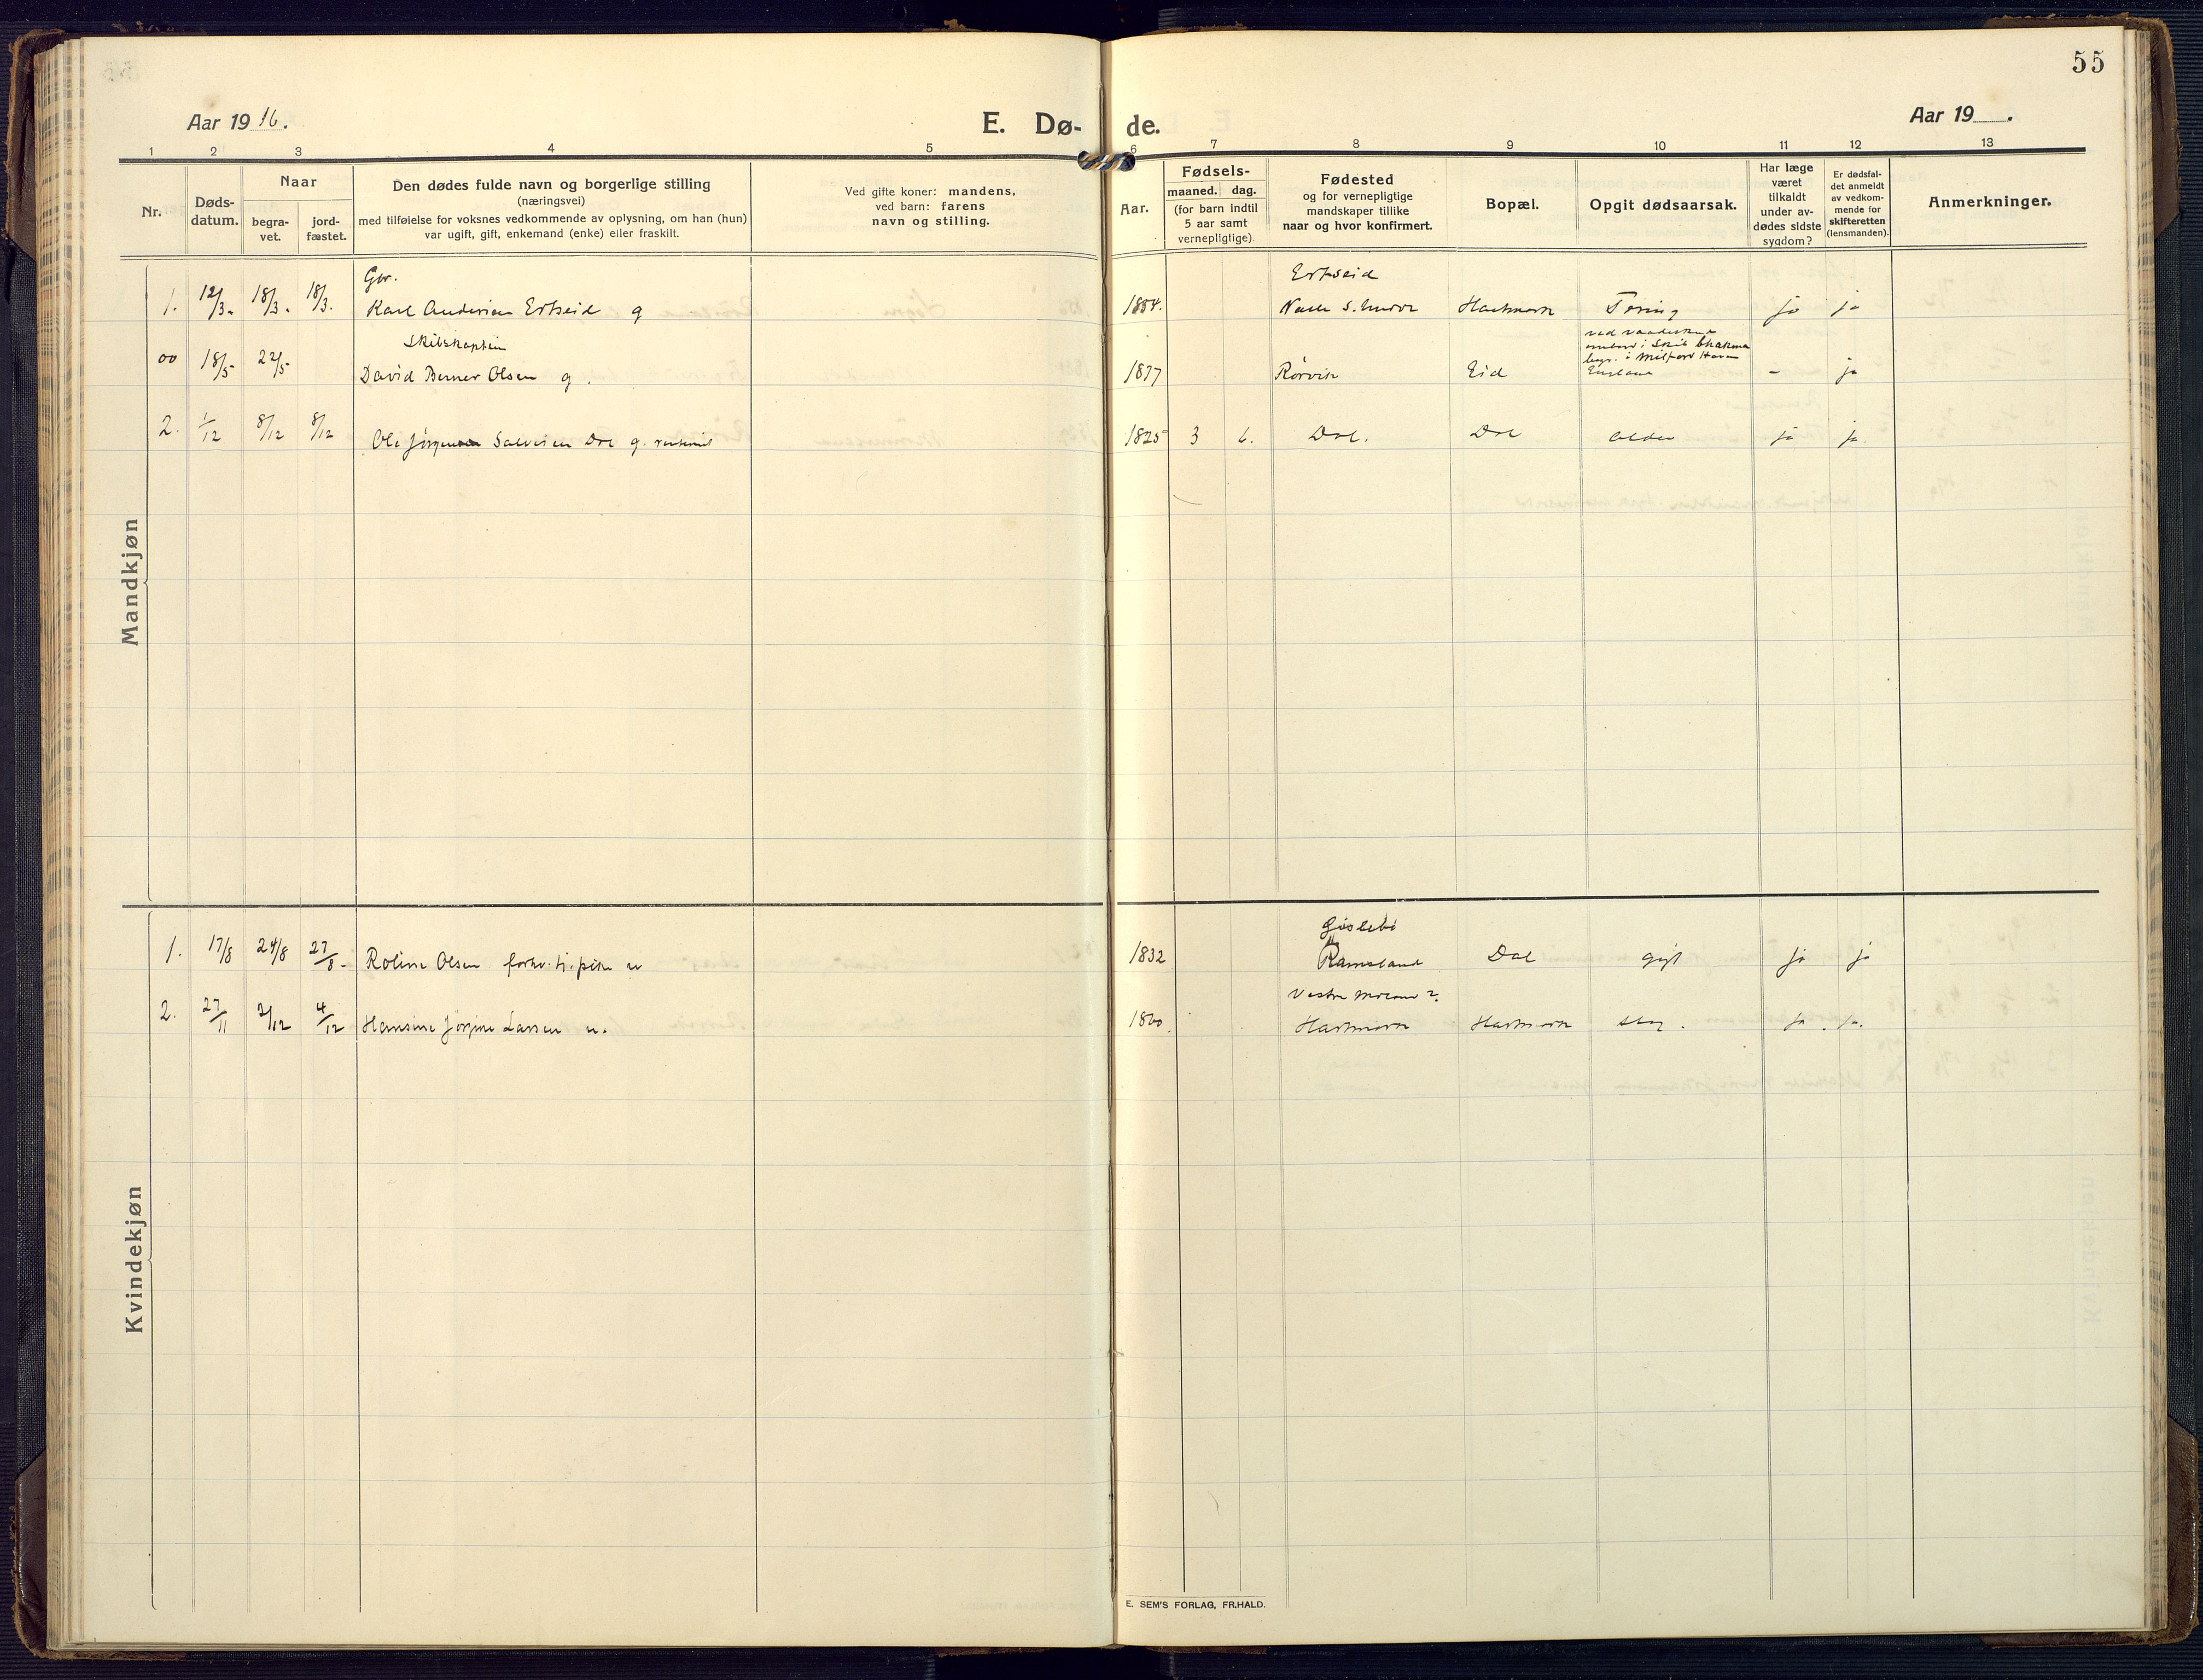 55
Aar 1916.
E. Dø-
de.
Aar 19 .
1 2 3 4 5 6 7 8 9 10 11 12 13
Nr.
Døds-
datum.
Naar
begra-
vet.
jord-
fæstet.
Den dødes fulde navn og borgerlige stilling
(næringsvei)
med tilføielse for voksnes vedkommende av oplysning, om han (hun)
var ugift, gift, enkemand (enke) eller fraskilt.
Ved gifte koner: mandens,
ved barn: farens
navn og stilling.
Aar.
Fødsels-
maaned. dag.
(for barn indtil
5 aar samt
vernepligtige).
Fødested
og for vernepligtige
mandskaper tillike
naar og hvor konfirmert.
Bopæl.
Opgit dødsaarsak.
Har læge
været
tilkaldt
under av-
dødes sidste
sygdom?
Er dødsfal-
det anmeldt
av vedkom-
mende for
skifteretten
(lensmanden).
Anmerkninger.
Mandkjøn
Gbr. Ertseid
1. 12/3. 18/3. 18/3. Karl Andersen Ertseid g 1854. Hartmark Tæring ja ja
Skibskaptein
ombord i Skib
begr. i Milford Haven
00 18/5 22/5 David Berner Olsen g. 1877 Rørvik Eid England - ja
2. 1/12 8/12 8/12 Ole Jørgensen Salvesen Dal g. 1825 3 6. Dal. Dal alder ja ja
Kvindekjøn
1. 17/8 24/8 27/8 Roline Olsen forhv. tj.pike u 1832 Ramsland Dal gigt ja ja
2. 27/11 2/12 4/12 Hansine Jørgine Larsen u. 1860. Hartmark Hartmark slag. ja. ja.
E. SEM'S FORLAG, FR.HALD.